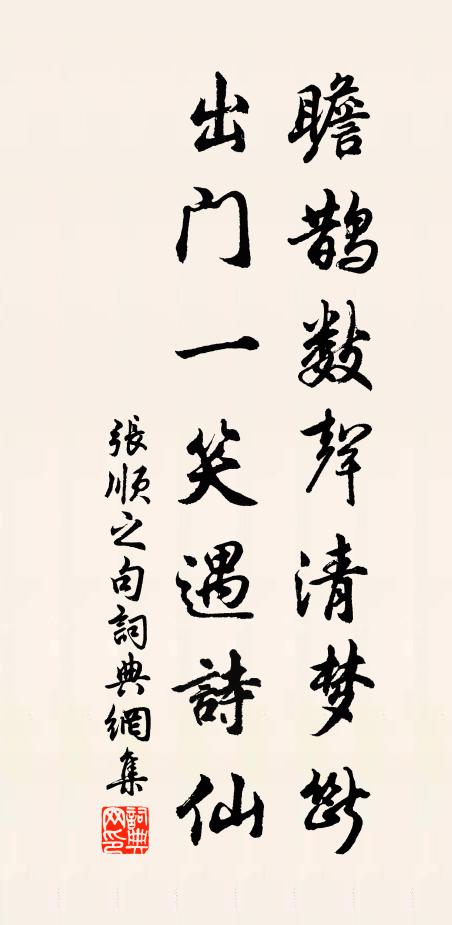 瞻鹊数聲清梦斷
出门一笑遇詩仙
張順之句詞典網集
詞典网印